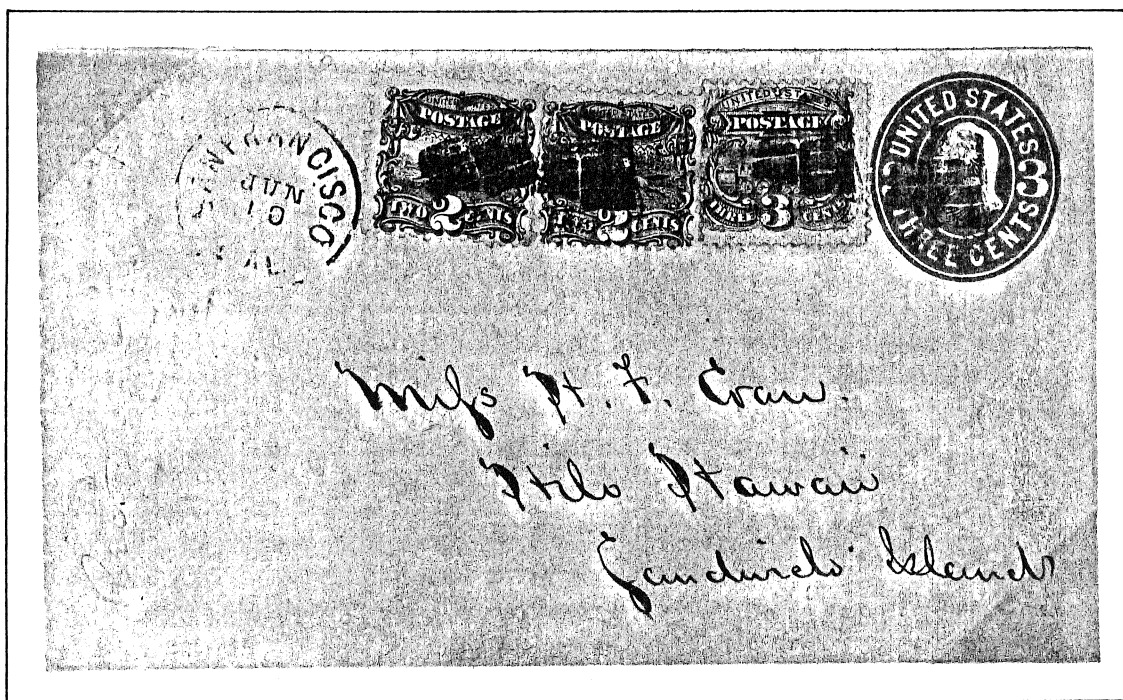 SAN FRANCISCO
JUN
10
UNITED STATES
POSTAGE
TWO 2 CENTS
UNITED STATES
POSTAGE
TWO 2 CENTS
UNITED STATES
POSTAGE
THREE 3 CENTS
UNITED STATES
3 3
THREE CENTS
Miss H. F. Craw.
Hilo Hawaii
Sandwich Islands